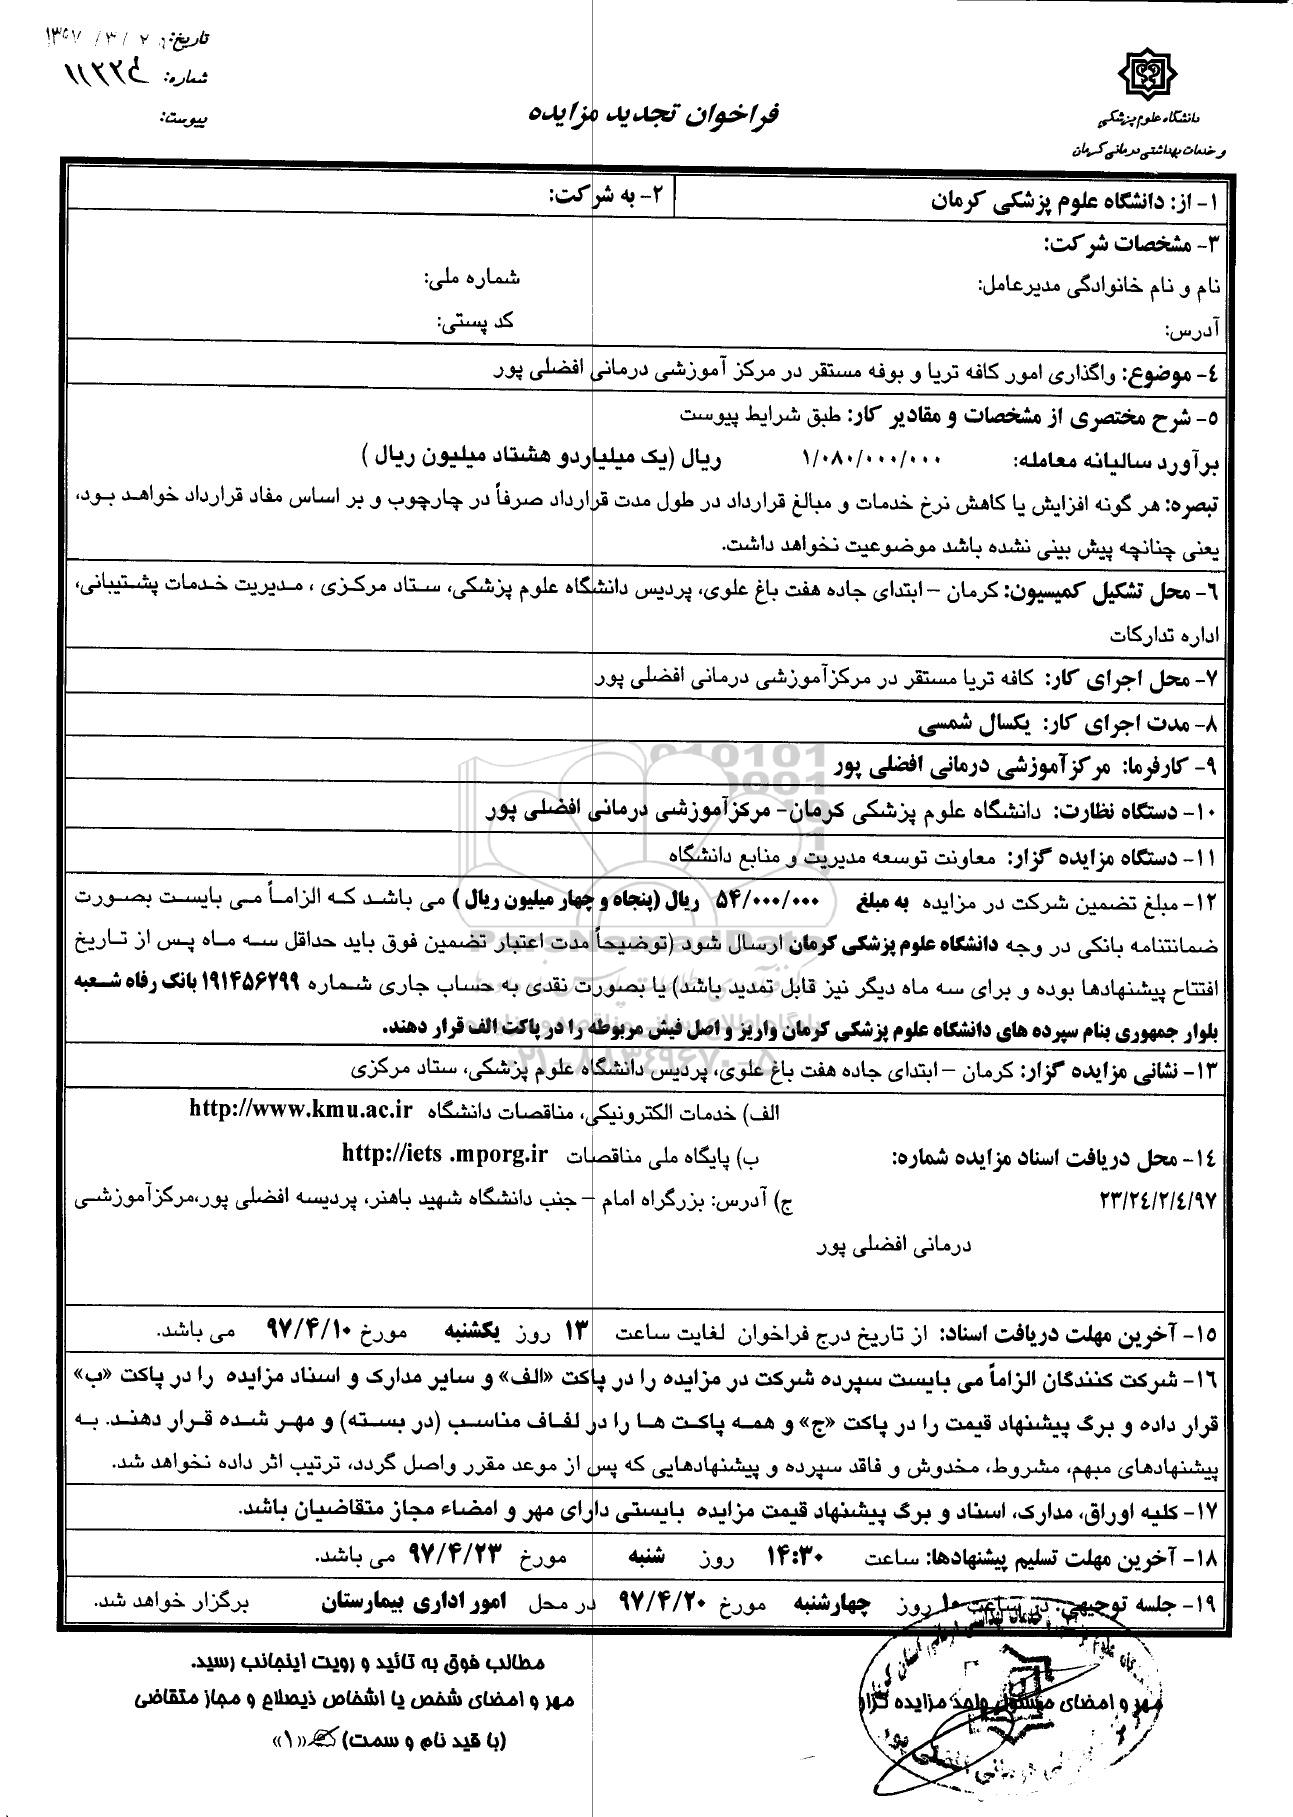 تاریخ:
شماره: ۱۱۲۲۴
پیوست:
دانشگاه علوم پزشکی
و خدمات بهداشتی درمانی کرمان
فراخوان تجدید مزایده
۱- از: دانشگاه علوم پزشکی کرمان
۲- به شرکت:
۳- مشخصات شرکت:
نام و نام خانوادگی مدیرعامل: شماره ملی:
آدرس: کد پستی:
۴- موضوع: واگذاری امور کافه تریا و بوفه مستقر در مرکز آموزشی درمانی افضلی پور
۵- شرح مختصری از مشخصات و مقادیر کار: طبق شرایط پیوست
برآورد سالیانه معامله: ۱/۰۸۰/۰۰۰/۰۰۰ ریال (یک میلیاردو هشتاد میلیون ریال )
تبصره: هر گونه افزایش یا کاهش نرخ خدمات و مبالغ قرارداد در طول مدت قرارداد صرفاً در چارچوب و بر اساس مفاد قرارداد خواهد بود،
یعنی چنانچه پیش بینی نشده باشد موضوعیت نخواهد داشت.
۶- محل تشکیل کمیسیون: کرمان – ابتدای جاده هفت باغ علوی، پردیس دانشگاه علوم پزشکی، ستاد مرکزی ، مدیریت خدمات پشتیبانی،
اداره تدارکات
۷- محل اجرای کار: کافه تریا مستقر در مرکزآموزشی درمانی افضلی پور
۸- مدت اجرای کار: یکسال شمسی
۹- کارفرما: مرکزآموزشی درمانی افضلی پور
۱۰- دستگاه نظارت: دانشگاه علوم پزشکی کرمان- مرکزآموزشی درمانی افضلی پور
۱۱- دستگاه مزایده گزار: معاونت توسعه مدیریت و منابع دانشگاه
۱۲- مبلغ تضمین شرکت در مزایده به مبلغ ۵۴/۰۰۰/۰۰۰ ریال (پنجاه و چهار میلیون ریال ) می باشد که الزاماً می بایست بصورت
ضمانتنامه بانکی در وجه دانشگاه علوم پزشکی کرمان ارسال شود (توضیحاً مدت اعتبار تضمین فوق باید حداقل سه ماه پس از تاریخ
افتتاح پیشنهادها بوده و برای سه ماه دیگر نیز قابل تمدید باشد) یا بصورت نقدی به حساب جاری شماره ۱۹۱۴۵۶۲۹۹ بانک رفاه شعبه
بلوار جمهوری بنام سپرده های دانشگاه علوم پزشکی کرمان واریز و اصل فیش مربوطه را در پاکت الف قرار دهند.
۱۳- نشانی مزایده گزار: کرمان – ابتدای جاده هفت باغ علوی، پردیس دانشگاه علوم پزشکی، ستاد مرکزی
الف) خدمات الکترونیکی، مناقصات دانشگاه http://www.kmu.ac.ir
۱۴- محل دریافت اسناد مزایده شماره: ب) پایگاه ملی مناقصات http://iets .mporg.ir
۲۳/۲٤/۲/٤/۹۷ ج) آدرس: بزرگراه امام – جنب دانشگاه شهید باهنر، پردیسه افضلی پور،مرکزآموزشی
درمانی افضلی پور
۱۵- آخرین مهلت دریافت اسناد: از تاریخ درج فراخوان لغایت ساعت ۱۳ روز یکشنبه مورخ ۹۷/۴/۱۰ می باشد.
۱۶- شرکت کنندگان الزاماً می بایست سپرده شرکت در مزایده را در پاکت «الف» و سایر مدارک و اسناد مزایده را در پاکت «ب»
قرار داده و برگ پیشنهاد قیمت را در پاکت «ج» و همه پاکت ها را در لفاف مناسب (در بسته) و مهر شده قرار دهند. به
پیشنهادهای مبهم، مشروط، مخدوش و فاقد سپرده و پیشنهادهایی که پس از موعد مقرر واصل گردد، ترتیب اثر داده نخواهد شد.
۱۷- کلیه اوراق، مدارک، اسناد و برگ پیشنهاد قیمت مزایده بایستی دارای مهر و امضاء مجاز متقاضیان باشد.
۱۸- آخرین مهلت تسلیم پیشنهادها: ساعت ۱۴:۳۰ روز شنبه مورخ ۹۷/۴/۲۳ می باشد.
۱۹- جلسه توجیهی: در ساعت ۱۰ روز چهارشنبه مورخ ۹۷/۴/۲۰ در محل امور اداری بیمارستان برگزار خواهد شد.
مطالب فوق به تائید و رویت اینجانب رسید.
مهر و امضای مسئول واحد مزایده گزار
مهر و امضای شخص یا اشخاص ذیصلاح و مجاز متقاضی
(با قید نام و سمت) «۱»